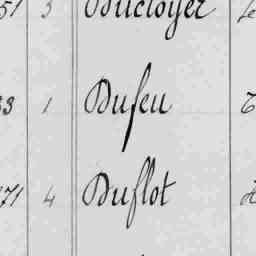 51 3 Ducloyer
33 1 Dufeu
71 4 Duflot